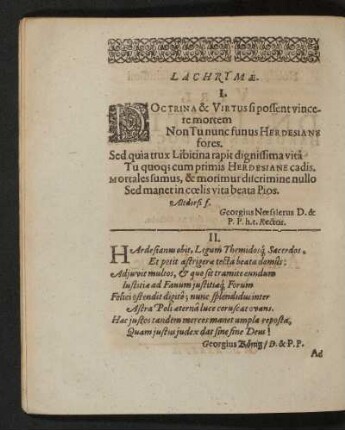 LACHRYMÆ.
I.
DOCTRINA & VIRTUS si possent vince-
re mortem
Non Tu nunc funus HERDESIANE
fores.
Sed quia trux Libitina rapit dignissima vitâ
Tu quoq; cum primis HERDESIANE cadis.
MORTALES sumus, & morimur discrimine nullo
Sed manet in cœlis vita beata Pios.
Altdorfi f.
Georgius Nœslerus D. &
P. P. h.t. Rector.
II.
HArdesianus obit, Legum Themidosq; Sacerdos,
Et petit astrigeræ tecta beata domûs:
Adjuvit multos, & quo sit tramite eundum
Iustitiæ ad Fanum justitiæq; Forum
Felici ostendit digitô; nunc splendidus inter
Astra Poli æternâ luce coruscat ovans.
Hæc justos tandem merces manet ampla reposta,
Quam justus judex dat sine fine Deus!
Georgius König / D. & P. P.
Ad